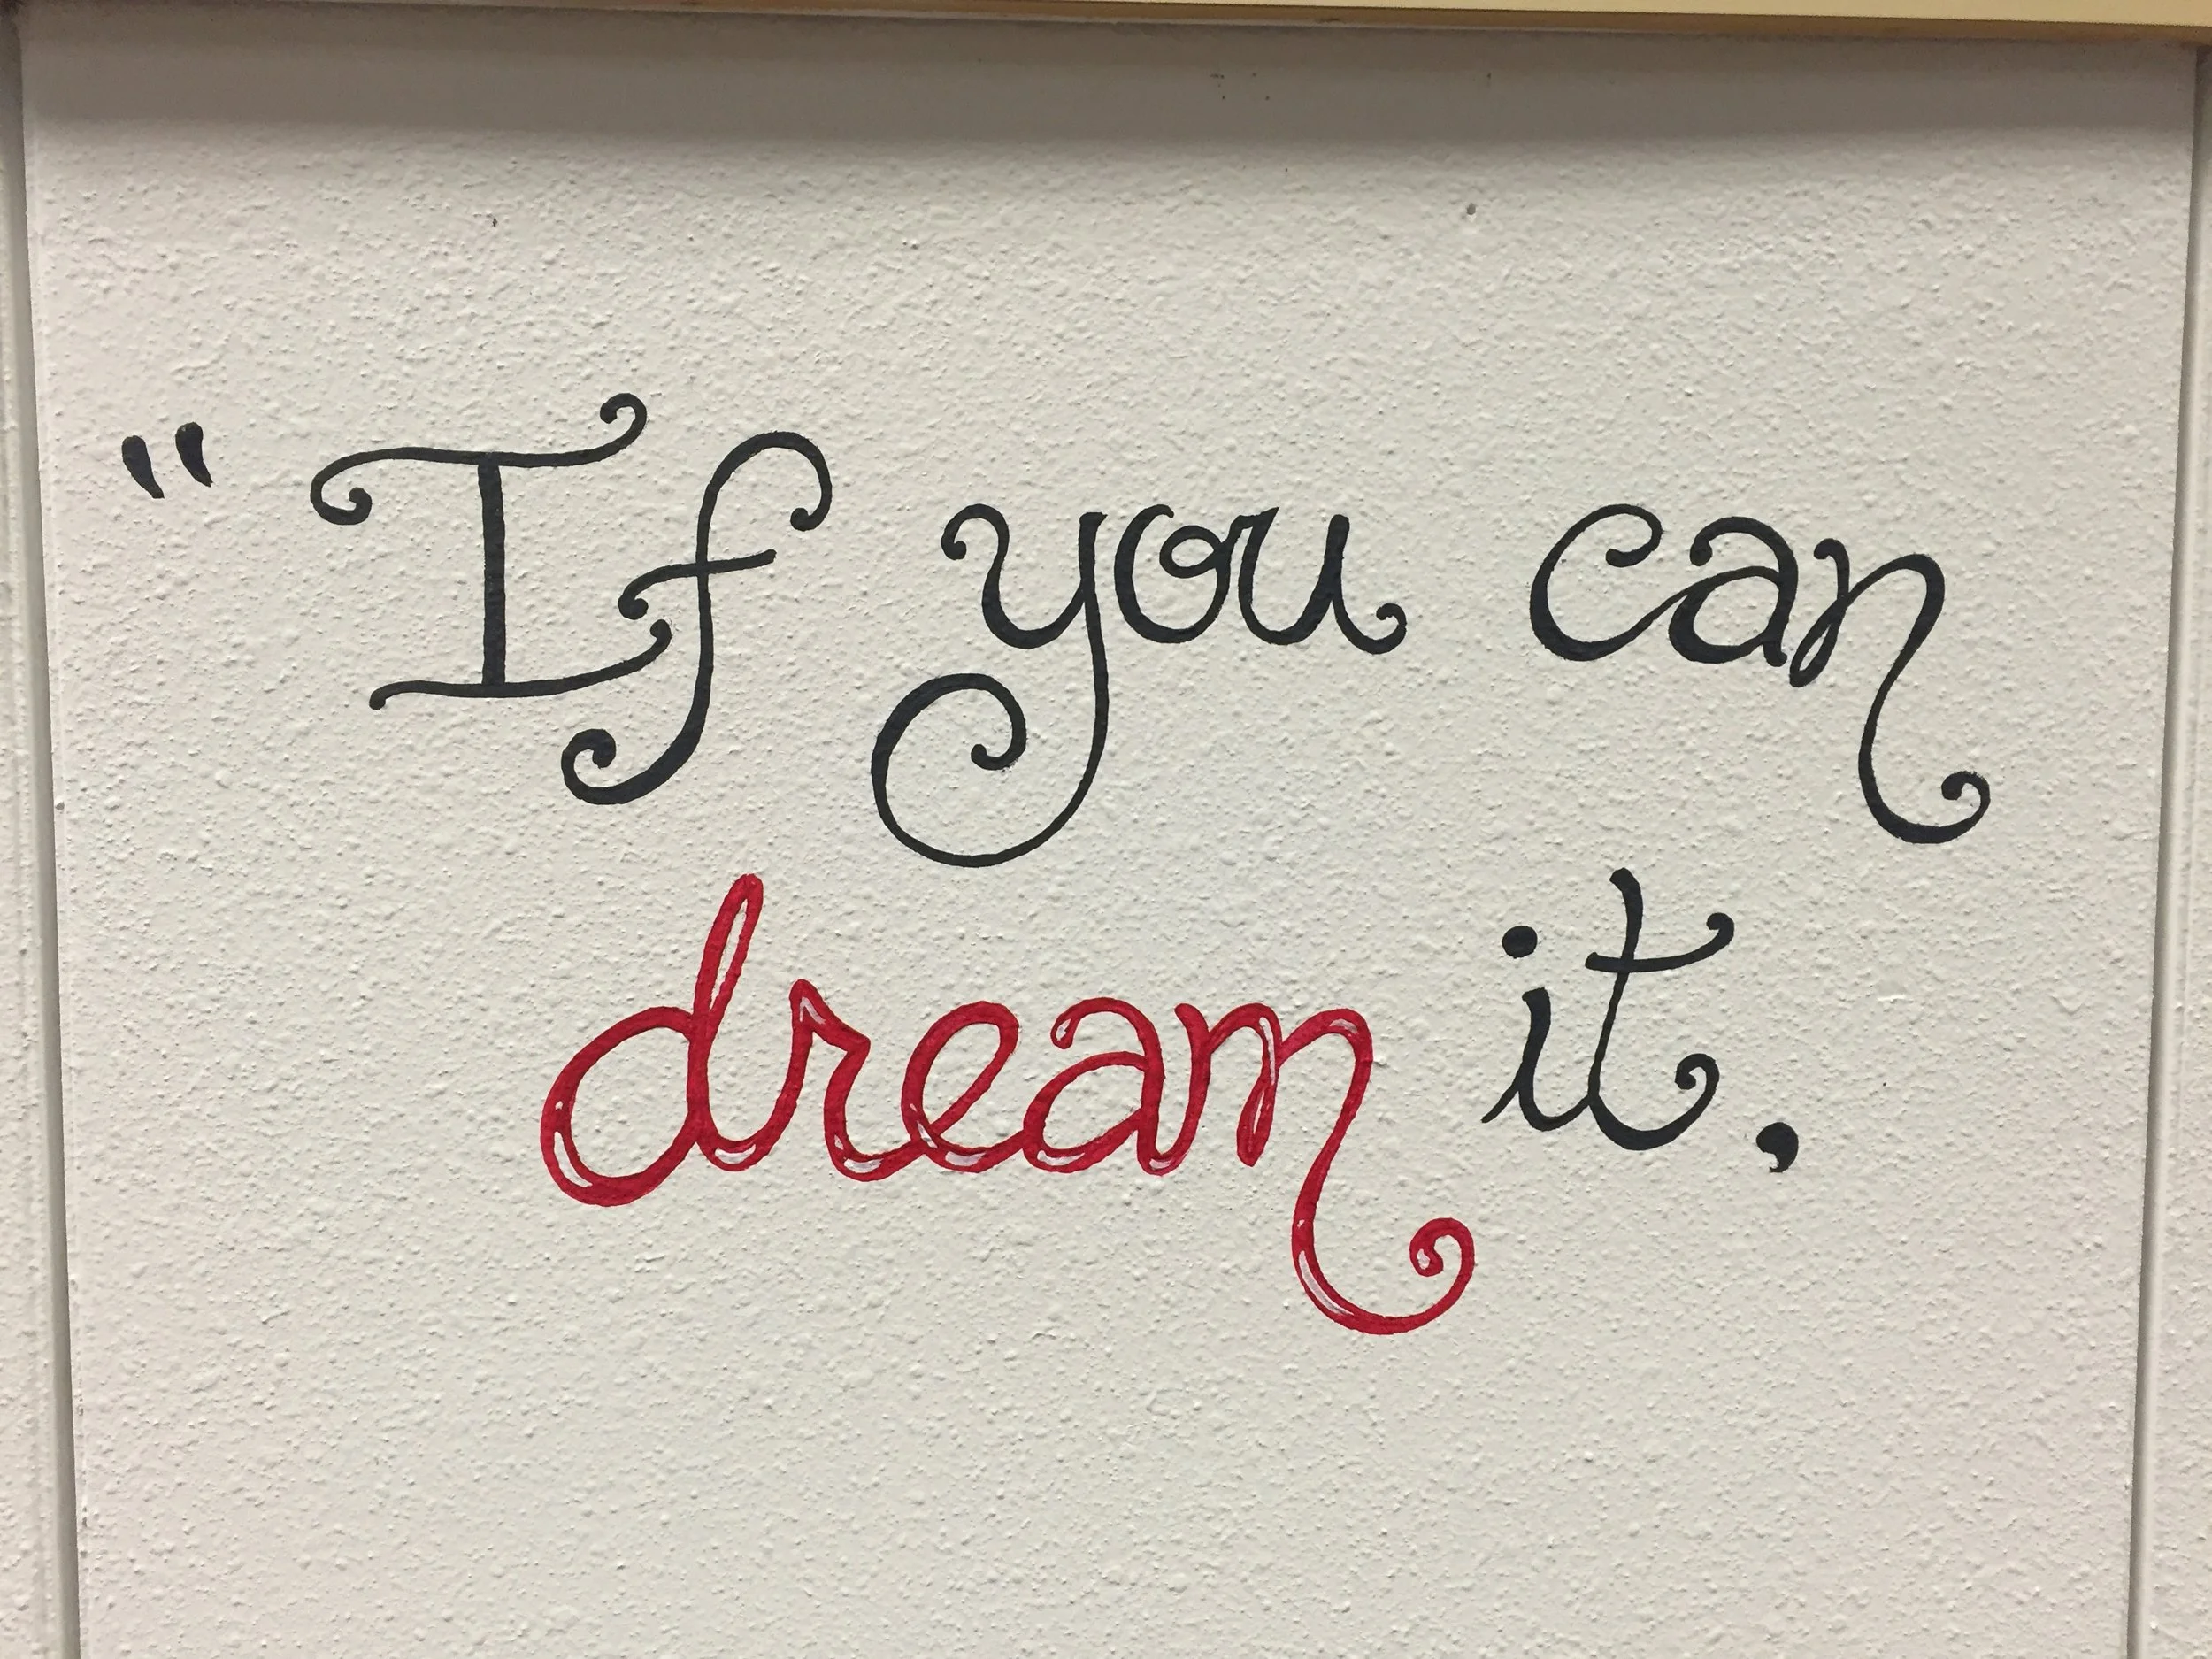 "If you can
dream it,